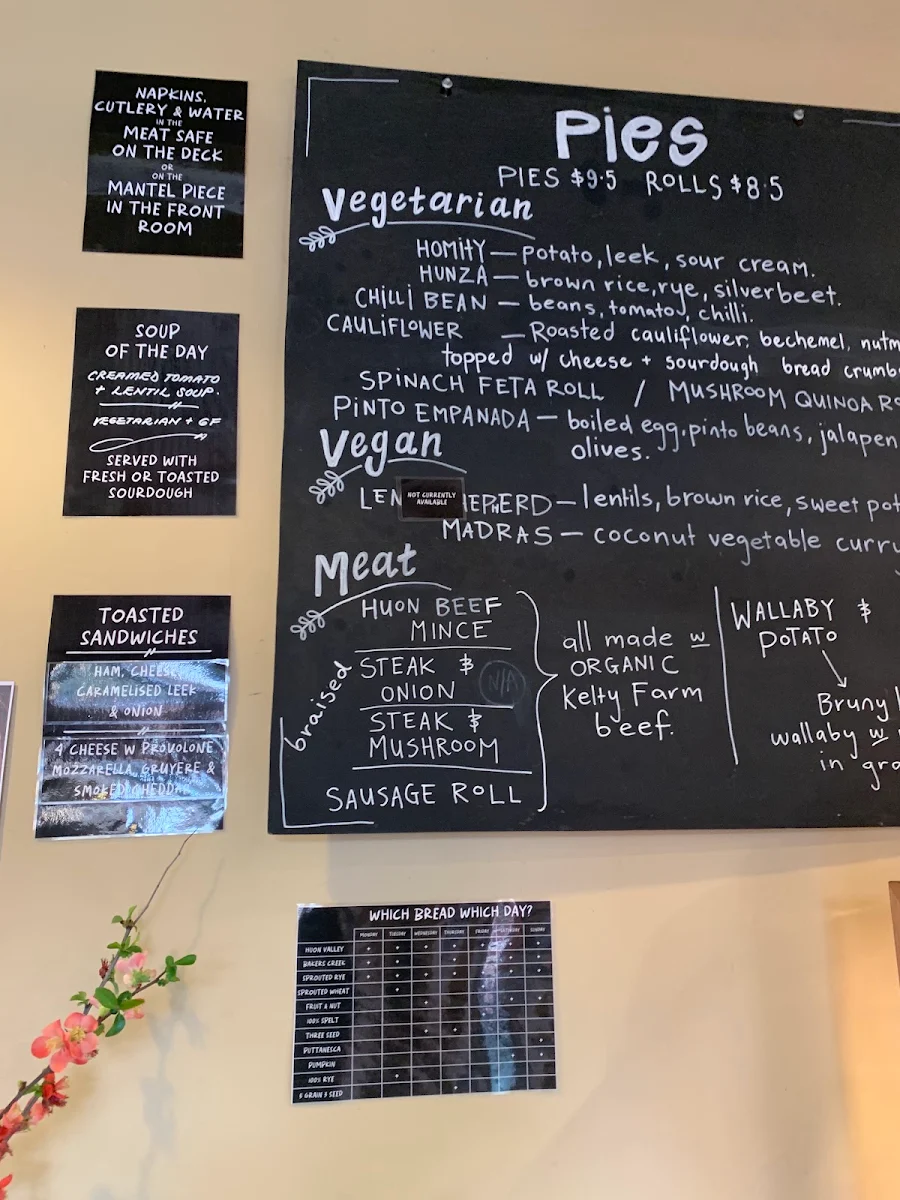 NAPKINS,
CUTLERY & WATER
IN THE
MEAT SAFE
ON THE DECK
OR
ON THE
MANTEL PIECE
IN THE FRONT
ROOM
SOUP
OF THE DAY
CREAMED TOMATO
+ LENTIL SOUP.
VEGETARIAN + GF
SERVED WITH
FRESH OR TOASTED
SOURDOUGH
TOASTED
SANDWICHES
HAM, CHEESE
CARAMELISED LEEK
& ONION
4 CHEESE W PROVOLONE
MOZZARELLA, GRUYERE &
SMOKED CHEDDAR
Pies
PIES $9.5 ROLLS $8.5
Vegetarian
HOMITY — potato, leek, sour cream.
HUNZA — brown rice, rye, silverbeet.
CHILLI BEAN — beans, tomato, chilli.
CAULIFLOWER — Roasted cauliflower, bechemel, nutm
topped w/ cheese + sourdough bread crumb
SPINACH FETA ROLL / MUSHROOM QUINOA RO
PINTO EMPANADA — boiled egg, pinto beans, jalapen
olives.
Vegan
LEN NOT CURRENTLY AVAILABLE HEPHERD — lentils, brown rice, sweet pot
MADRAS — coconut vegetable curry
Meat
HUON BEEF
MINCE
braised
STEAK &
ONION N/A
STEAK &
MUSHROOM
SAUSAGE ROLL
all made w
ORGANIC
Kelty Farm
beef.
WALLABY &
POTATO
Bruny
wallaby w
in gra
WHICH BREAD WHICH DAY?
MONDAY TUESDAY WEDNESDAY THURSDAY FRIDAY SATURDAY SUNDAY
HUON VALLEY
BAKERS CREEK
SPROUTED RYE
SPROUTED WHEAT
FRUIT & NUT
100% SPELT
THREE SEED
PUTTANESCA
PUMPKIN
100% RYE
5 GRAIN 3 SEED